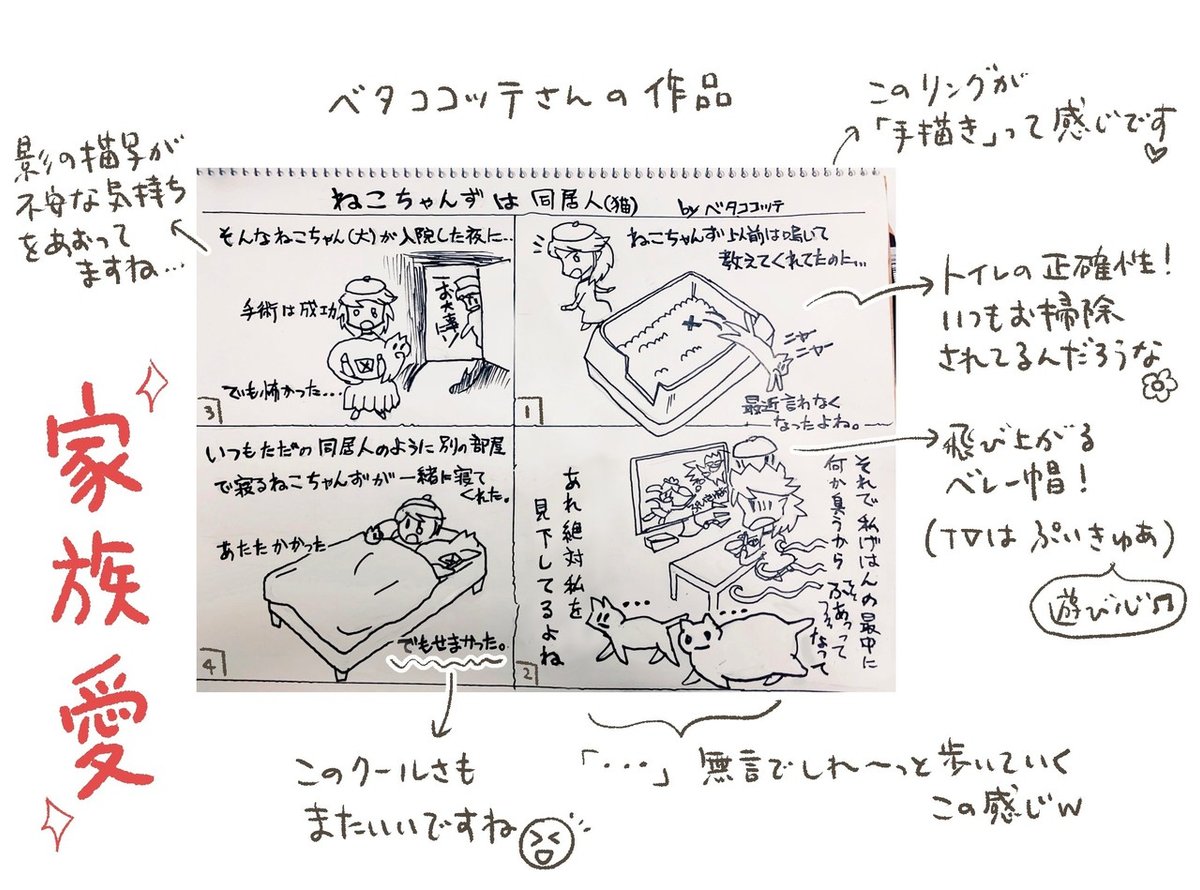 ベタココッテさんの作品
このリングが
「手描き」って感じです
影の描写が
不安な気持ち
をあおって
ますね…
家族愛
ねこちゃんずは 同居人(猫) by ベタココッテ
ねこちゃんず以前は鳴いて
教えてくれてたのに…
ニャー
ニャー
最近言わなく
なったよね。
1
それで私がごはんの最中に
何か臭うから
ふあって
なって
あれ絶対私を
見下してるよね
…
…
2
そんなねこちゃん(大)が入院した夜に…
手術は成功
お大事に!
でも怖かった…
3
いつもただの同居人のように別の部屋
で寝るねこちゃんずが一緒に寝て
くれた。
あたたかかった
でもせまかった。
4
トイレの正確性!
いつもお掃除
されてるんだろうな
飛び上がる
ベレー帽!
(TVは ぷいきゅあ)
遊び心♫
このクールさも
またいいですね
「・・・」無言でしれ〜っと歩いていく
この感じw